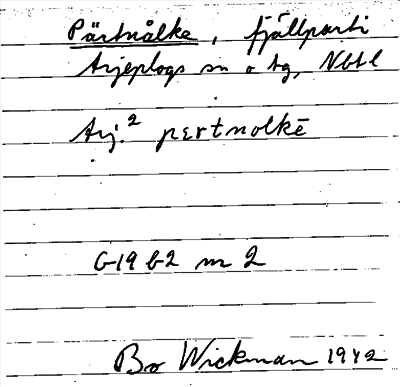 Pärtnålke, fjällparti
Arjeplogs sn o tg, Nbtl
Arj.² pɛrtnolkē
G19 b2 m 2
Bo Wickman 1942